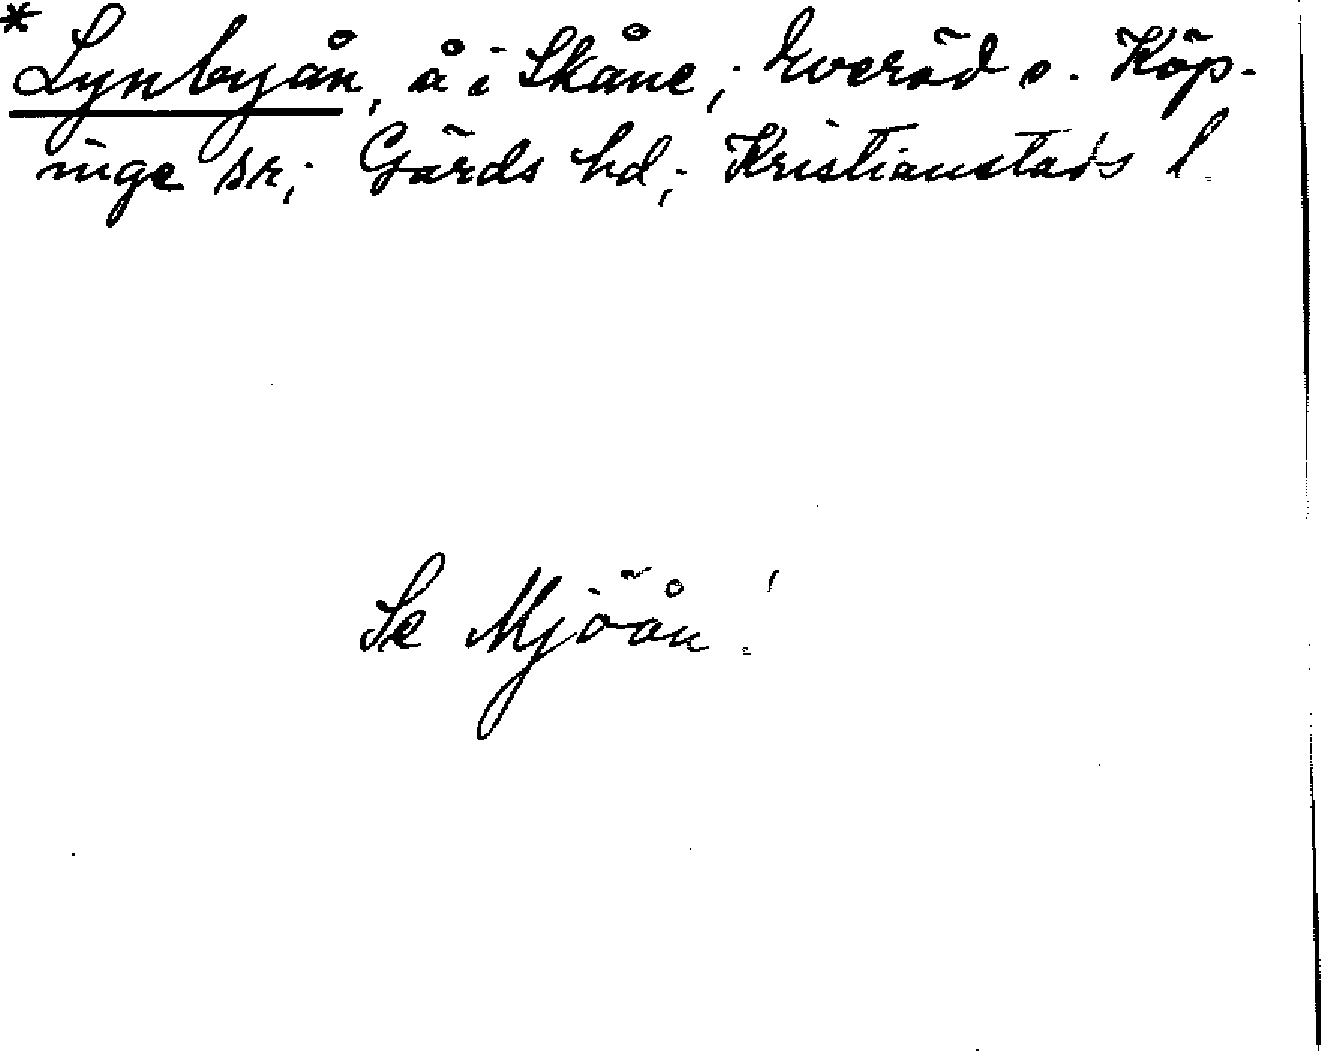 * Lynbyån, å i Skåne; Everöd o. Köp-
inge snr; Gärds hd; Kristianstads l.
Se Mjöån!